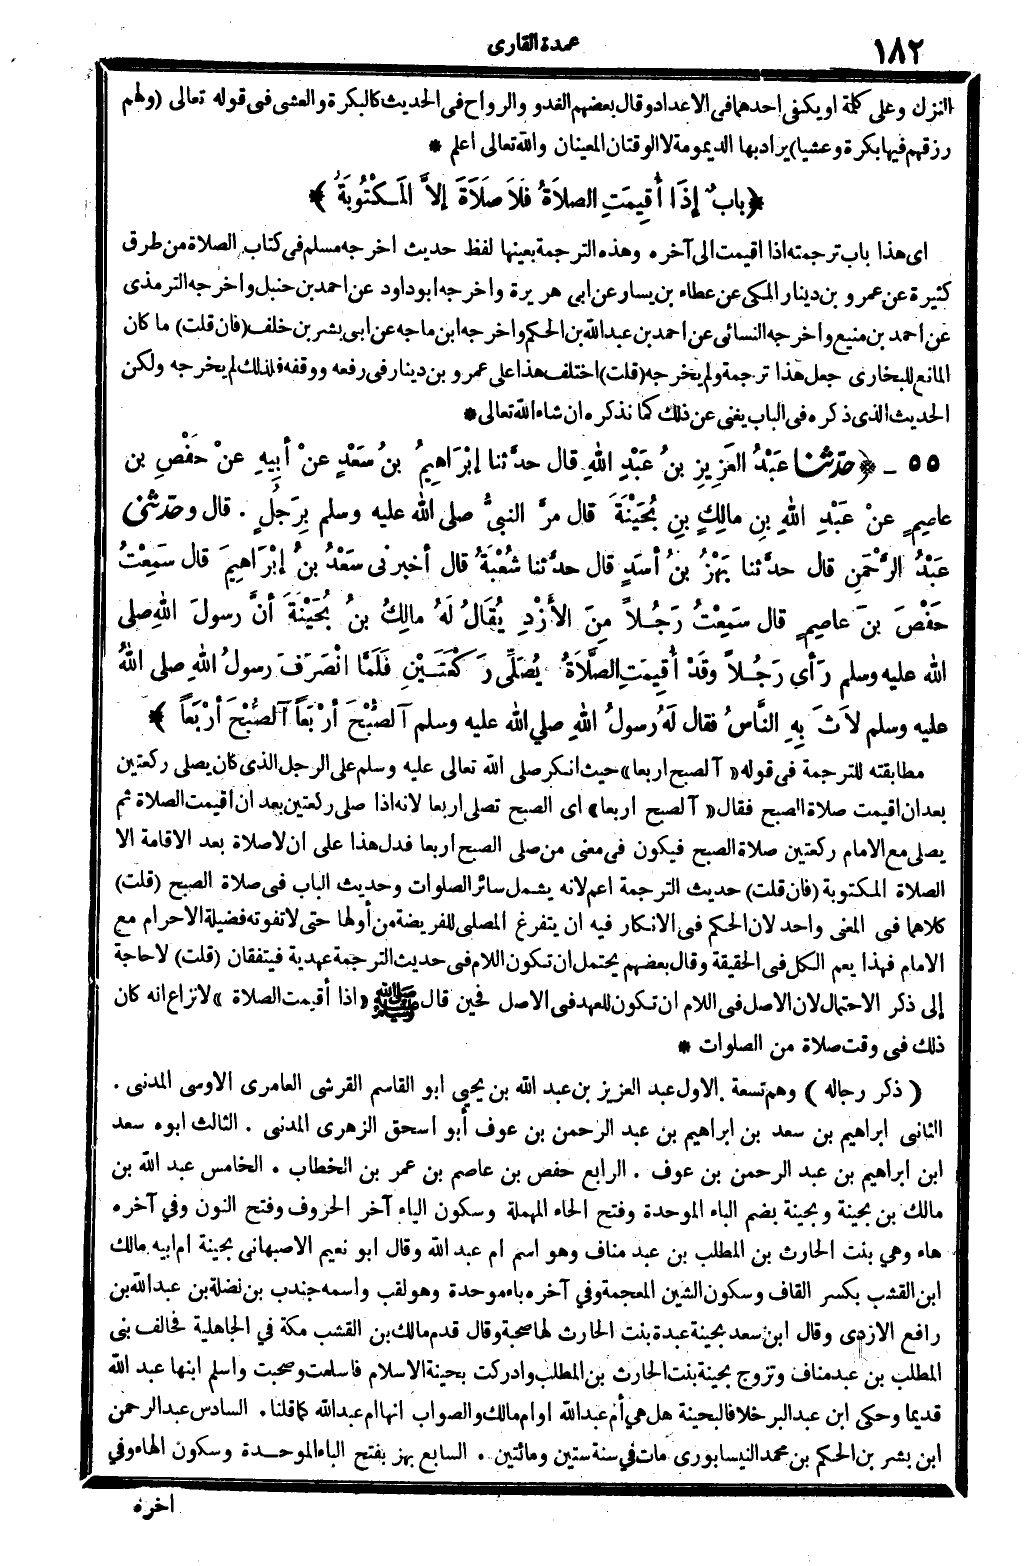 ١٨٢
عمدة القارى
النزل وعلى كلمة او يكفى احدهما فى الاعداد وقال بعضهم الغدو والرواح فى الحديث كالبكرة والعشى فى قوله تعالى (ولهم
رزقهم فيها بكرة وعشيا) يراد بها الديمومة لا الوقتان المعينان والله تعالى اعلم *
﴿باب ٌ إذَا أُقِيمَتِ الصلاَةُ فَلاَ صَلاَةَ إلاَّ المَكْتُوبَةُ﴾
اى هذا باب ترجمته اذا اقيمت الى آخره وهذه الترجمة بعينها لفظ حديث اخرجه مسلم فى كتاب الصلاة من طرق
كثيرة عن عمرو بن دينار المكى عن عطاء بن يسار عن ابى هريرة واخرجه ابو داود عن احمد بن حنبل واخرجه الترمذى
عن احمد بن منيع واخرجه النسائى عن احمد بن عبد الله بن الحكم واخرجه ابن ماجه عن ابى بشر بن خلف (فان قلت) ما كان
المانع للبخارى جعل هذا ترجمة ولم يخرجه (قلت) اختلف هذا على عمرو بن دينار فى رفعه ووقفه فلذلك لم يخرجه ولكن
الحديث الذى ذكره فى الباب يغنى عن ذلك كما نذكره ان شاء الله تعالى *
٥٥ ـ ﴿حدّثنا عَبْدُ العَزِيزِ بنُ عَبْدِ اللهِ قال حدَّثنا إبْرَاهِيمُ بنُ سَعْدٍ عنْ أبِيهِ عنْ حَفْصِ بنِ
عاصِمٍ عنْ عَبْدِ اللهِ بنِ مالِكٍ بنِ بُحَيْنَةَ قال مرَّ النبيُّ صلى الله عليه وسلم بِرَجُلٍ . قال وحدّثنى
عَبْدُ الرَّحْمنِ قال حدَّثنا بَهْزُ بنُ أسَدٍ قال حدَّثنا شُعْبَةُ قال أخبرنى سَعْدُ بنُ إبْرَاهِيمَ قال سَمِعْتُ
حَفْصَ بنَ عاصِمٍ قال سَمِعْتُ رَجُلاً مِنَ الأَزْدِ يُقَالُ لَهُ مالِكُ بنُ بُحَيْنَةَ أنَّ رسولَ اللهِ صلى
الله عليه وسلم رَأي رَجُلاً وقَدْ أُقِيمَتِ الصَّلاَةُ يُصَلِّى رَكْعَتَيْنِ فَلَمَّا انْصَرَفَ رسولُ اللهِ صلى اللهُ
عليه وسلم لاَثَ بِهِ النَّاسُ فقال لَهُ رسولُ اللهِ صلي الله عليه وسلم آلصُّبْحَ أرْبَعاً آلصُّبْحَ أرْبَعاً﴾
مطابقته للترجمة فى قوله «آلصبح اربعا» حيث انكر صلى الله تعالى عليه وسلم على الرجل الذى كان يصلى ركعتين
بعد ان اقيمت صلاة الصبح فقال «آلصبح اربعا» اى الصبح تصلى اربعا لانه اذا صلى ركعتين بعد ان أقيمت الصلاة ثم
يصلى مع الامام ركعتين صلاة الصبح فيكون فى معنى من صلى الصبح اربعا فدل هذا على ان لا صلاة بعد الاقامة الا
الصلاة المكتوبة (فان قلت) حديث الترجمة اعم لانه يشمل سائر الصلوات وحديث الباب فى صلاة الصبح (قلت)
كلاهما فى المعنى واحد لان الحكم فى الانكار فيه ان يتفرغ المصلى للفريضة من أولها حتى لا تفوته فضيلة الاحرام مع
الامام فهذا يعم الكل فى الحقيقة وقال بعضهم يحتمل ان تكون اللام فى حديث الترجمة عهدية فيتفقان (قلت) لا حاجة
إلى ذكر الاحتمال لان الاصل فى اللام ان تكون للعهد فى الاصل فحين قال ﷺ «اذا أقيمت الصلاة» لا نزاع انه كان
ذلك فى وقت صلاة من الصلوات *
( ذكر رجاله ) وهم تسعة . الاول عبد العزيز بن عبد الله بن يحيي ابو القاسم القرشى العامرى الاوسى المدنى .
الثانى ابراهيم بن سعد بن ابراهيم بن عبد الرحمن بن عوف أبو اسحق الزهرى المدنى . الثالث ابوه سعد
ابن ابراهيم بن عبد الرحمن بن عوف . الرابع حفص بن عاصم بن عمر بن الخطاب . الخامس عبد الله بن
مالك بن بحينة وبحينة بضم الباء الموحدة وفتح الحاء المهملة وسكون الياء آخر الحروف وفتح النون وفي آخره
هاء وهي بنت الحارث بن المطلب بن عبد مناف وهو اسم ام عبد الله وقال ابو نعيم الاصبهانى بحينة ام ابيه مالك
ابن القشب بكسر القاف وسكون الشين المعجمة وفي آخره باء موحدة وهو لقب واسمه جندب بن نضلة بن عبد الله بن
رافع الازدى وقال ابن سعد بحينة عبدة بنت الحارث لها صحبة وقال قدم مالك بن القشب مكة في الجاهلية فحالف بنى
المطلب بن عبد مناف وتزوج بحينة بنت الحارث بن المطلب وادركت بحينة الاسلام فاسلمت وصحبت واسلم ابنها عبد الله
قديما وحكى ابن عبد البر خلافا لبحينة هل هي أم عبد الله او ام مالك والصواب انها ام عبد الله كما قلنا . السادس عبد الرحمن
ابن بشر بن الحكم بن محمد النيسابورى مات في سنة ستين ومائتين . السابع بهز بفتح الباء الموحدة وسكون الهاء وفي
اخره